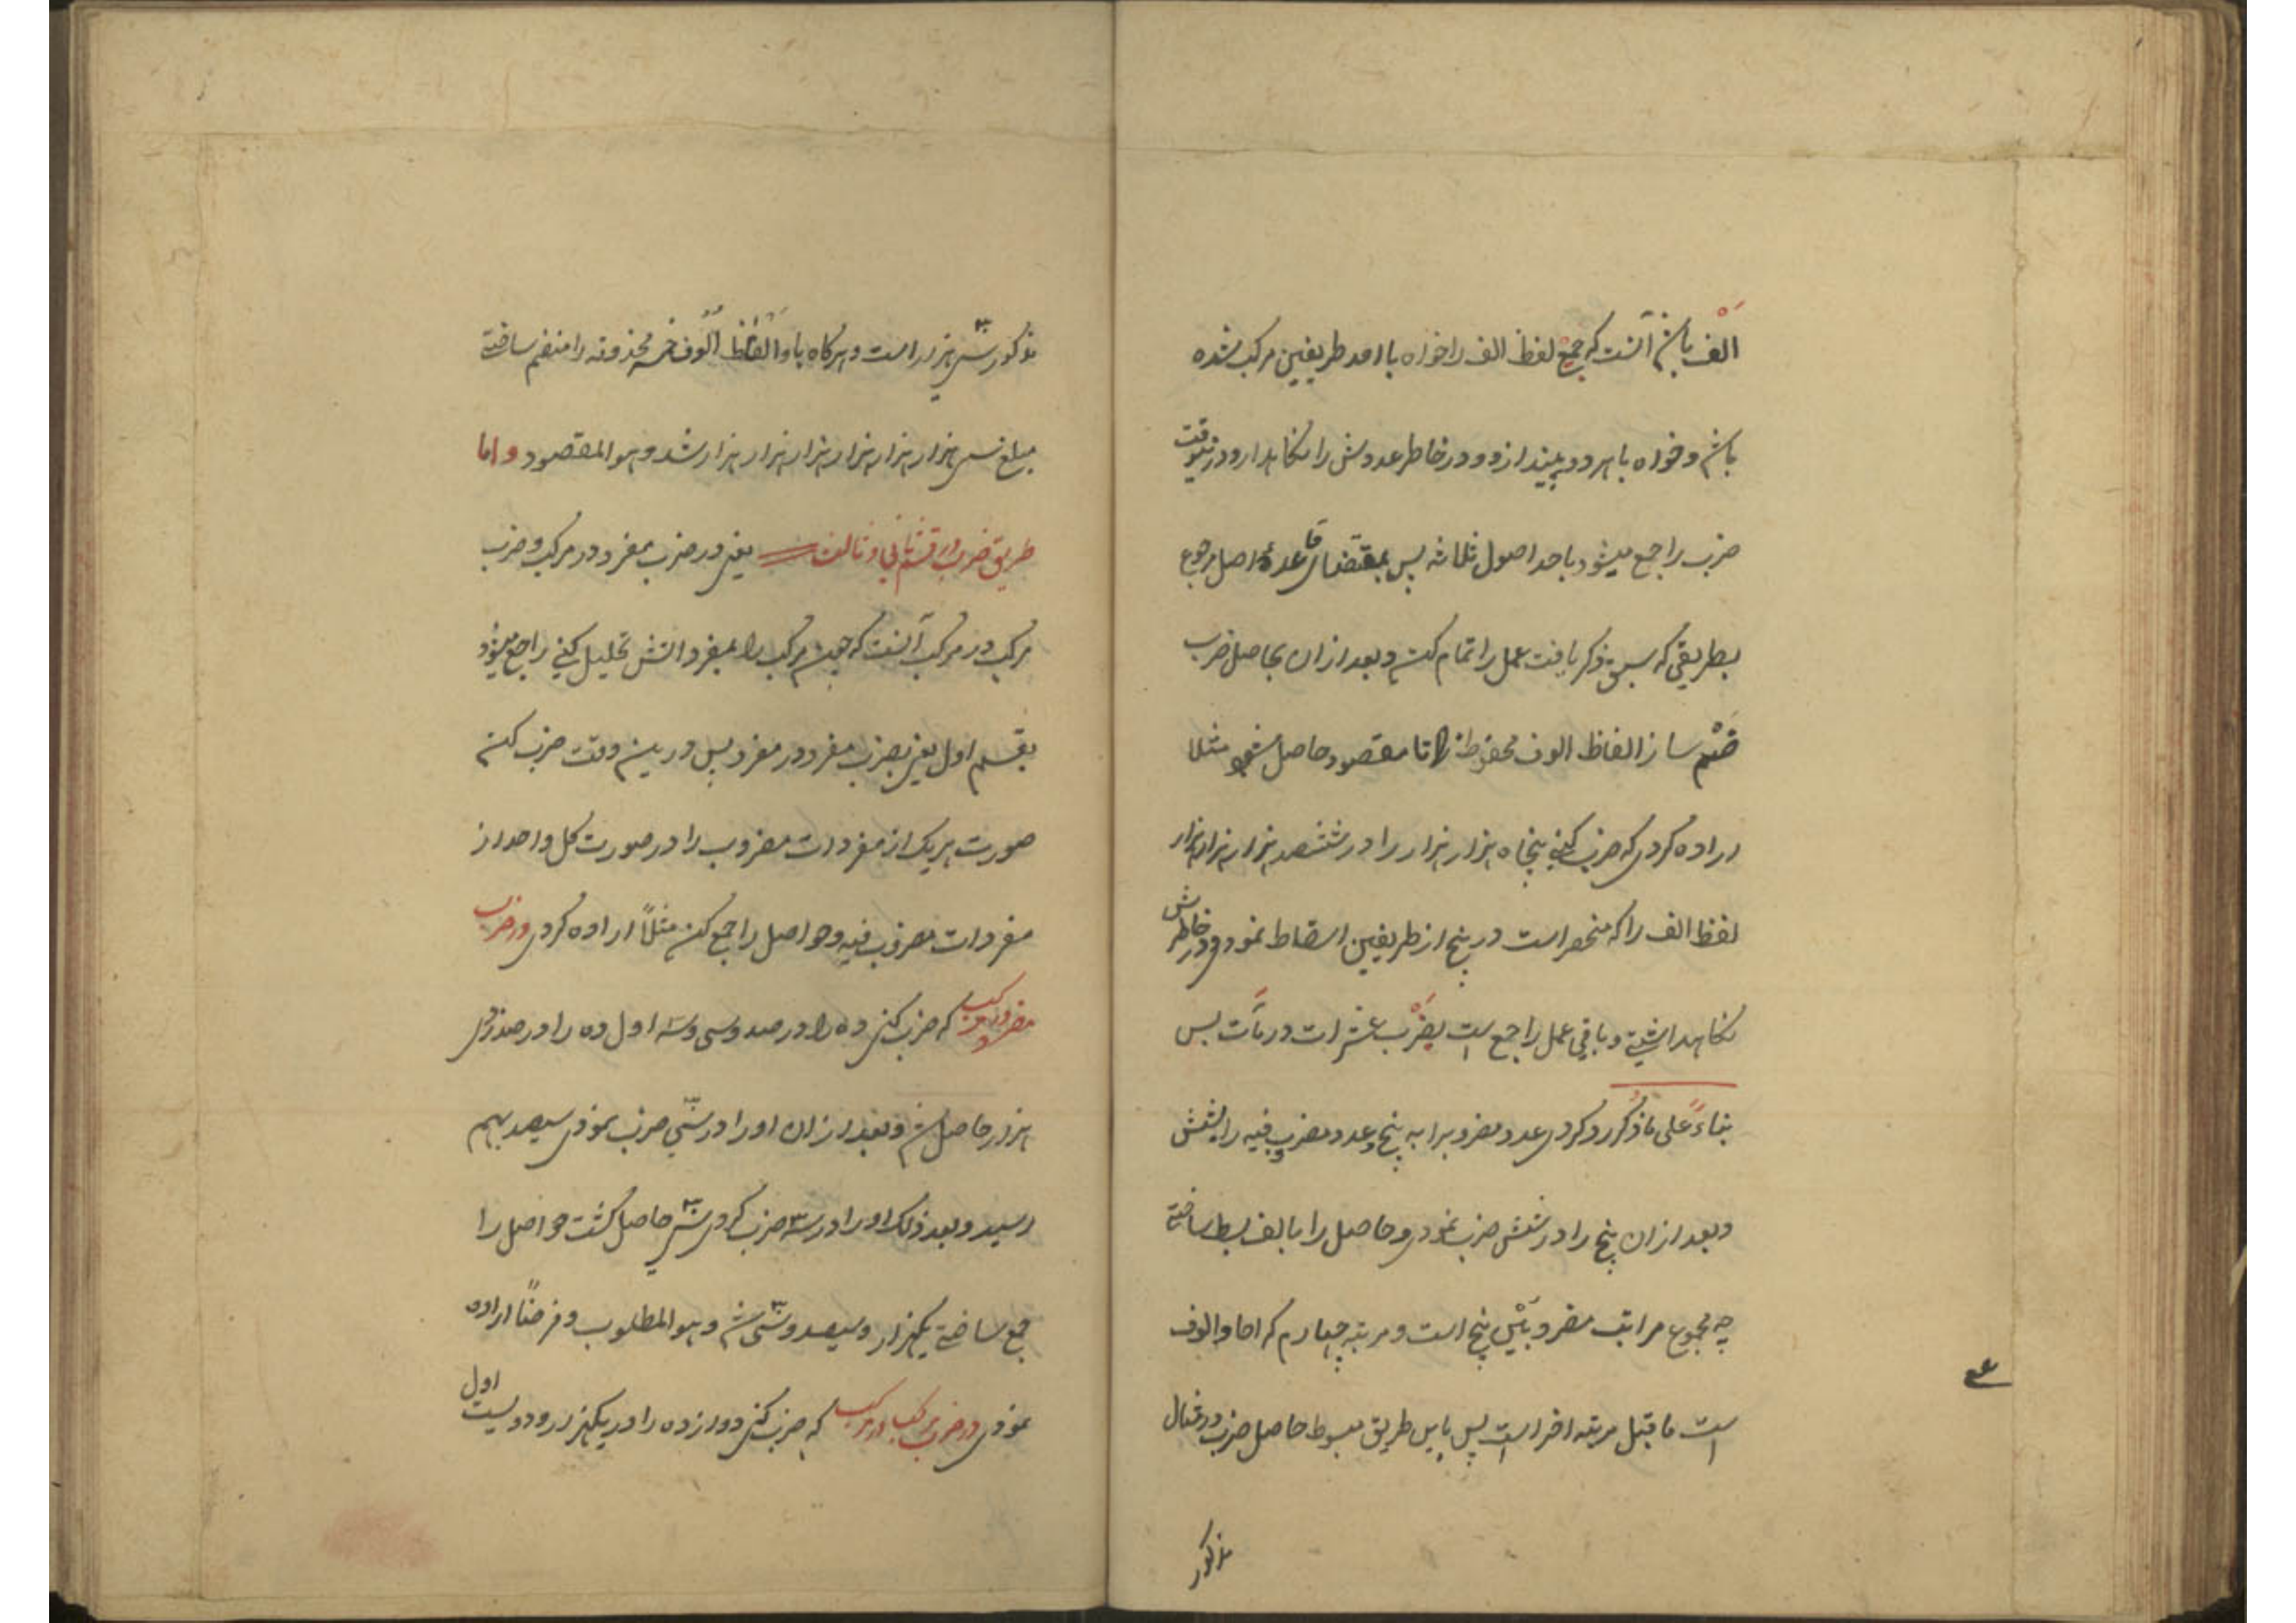 الف باشد آنست که جمیع لفظ الف را خواه باحد طریفین مرکب شده
باشد و خواه بهر دو بیندازد و در خاطر عددش را نگاهدارد و درینوقت
ضرب راجع میشود باحد اصول ثلاثه پس بمقتضای قاعدهٔ اصل مرجوع
بطریقی که سبق ذکر یافت عمل را تمام کند و بعد ازان بحاصل ضرب
ضم ساز الفاظ الوف محفوظه را تا مقصود حاصل شود مثلا
اراده کردی که ضرب کنی پنجاه هزار هزار را در ششصد هزار هزار هزار
لفظ الف را که منحصر است در پنج از طریفین اسقاط نمودی و در خاطرش
نگاهداشتی و باقی عمل راجع است بضرب عشرات در مآت پس
بناءً علی ما ذکر رد کردی عدد مضروب را به پنج و عدد مضروب فیه را بشش
و بعد ازان پنج را در شش ضرب نمودی و حاصل را بالف بسط ساختی
چه مجموع مراتب مضروبین پنج است و مرتبه چهارم که احاد الوف
است ما قبل مرتبه اخر است پس باین طریق مبسوط حاصل ضرب در مثال
مذکور
مذکور سی هزار است و هرگاه باو الفاظ الوف خمسه محذوفه را منضم ساختی
مبلغ سی هزار هزار هزار هزار هزار هزار شد و هو المقصود و اما
طریق ضرب در قسم ثانی و ثالث یعنی در ضرب مفرد در مرکب و ضرب
مرکب در مرکب آنست که چون مرکب را بمفرداتش تحلیل کنی راجع میشود
بقسم اول یعنی بضرب مفرد در مفرد پس درین وقت ضرب کن
صورت هریک از مفردات مضروب را در صورت کل واحد از
مفردات مضروب فیه و حواصل را جمع کن مثلاً اراده کردی در ضرب
مفرد در مرکب که ضرب کنی ده را در صد و سی و سه اول ده را در صد زدی
هزار حاصل شد و بعد ازان او را در سی ضرب نمودی سیصد بهم
رسید و بعد ذلک او را در سه ضرب کردی سی حاصل گشت حواصل را
جمع ساختی یکهزار و سیصد و سی شد و هو المطلوب و فرضاً اراده
نمودی در ضرب مرکب در مرکب که ضرب کنی دوازده را در یکهزار و دویست اول